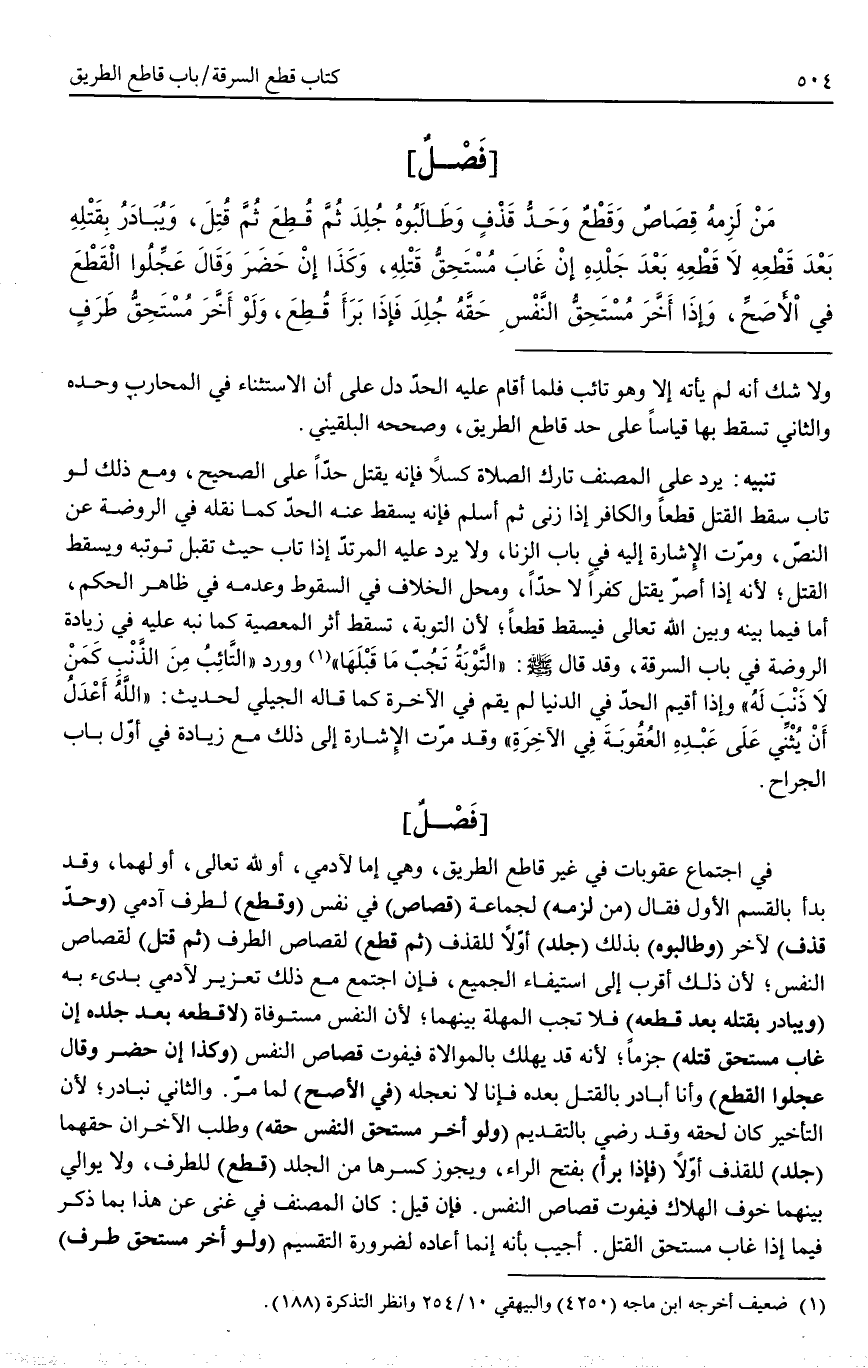 ٥٠٤
كتاب قطع السرقة/ باب قاطع الطريق
[فَصْــلٌ]
مَنْ لَزِمهُ قِصَاصٌ وَقَطْعٌ وَحَـدُّ قَذْفٍ وَطَـالَبُوهُ جُلِدَ ثُمَّ قُـطِعَ ثُمَّ قُتِلَ، وَيُبَـادَرُ بِقَتْلِهِ
بَعْدَ قَطْعِهِ لَا قَطْعِهِ بَعْدَ جَلْدِهِ إنْ غَابَ مُسْتَحِقُّ قَتْلِهِ، وَكَذَا إنْ حَضَرَ وَقَالَ عَجِّلُوا الْقَطْعَ
فِي الْأَصَحِّ، وَإِذَا أَخَّرَ مُسْتَحِقُّ النَّفْسِ حَقَّهُ جُلِدَ فَإِذَا بَرَأَ قُـطِعَ، وَلَوْ أَخَّرَ مُسْتَحِقُّ طَرَفٍ
ولا شك أنه لم يأته إلا وهو تائب فلما أقام عليه الحدّ دل على أن الاستثناء في المحارب وحده
والثاني تسقط بها قياساً على حد قاطع الطريق، وصححه البلقيني.
تنبيه: يرد على المصنف تارك الصلاة كسلاً فإنه يقتل حدّاً على الصحيح، ومع ذلك لـو
تاب سقط القتل قطعاً والكافر إذا زنى ثم أسلم فإنه يسقط عنـه الحدّ كمـا نقله في الروضـة عن
النصّ، ومرّت الإشارة إليه في باب الزنا، ولا يرد عليه المرتدّ إذا تاب حيث تقبل تـوبته ويسقط
القتل؛ لأنه إذا أصرّ يقتل كفراً لا حدّاً، ومحل الخلاف في السقوط وعدمـه في ظاهـر الحكم،
أما فيما بينه وبين الله تعالى فيسقط قطعاً؛ لأن التوبة، تسقط أثر المعصية كما نبه عليه في زيادة
الروضة في باب السرقة، وقد قال ﷺ: «التَّوْبَةُ تَجُبّ مَا قَبْلَهَا»(١) وورد «التَّائِبُ مِنَ الذَّنْبِ كَمَنْ
لَا ذَنْبَ لَهُ» وإذا أقيم الحدّ في الدنيا لم يقم في الآخـرة كما قـاله الجيلي لحديث: «اللَّهُ أَعْدَلُ
أَنْ يُثْنِّي عَلَى عَبْـدِهِ العُقُوبَـةَ فِي الآخِرَةِ» وقـد مرّت الإشـارة إلى ذلك مـع زيادة في أوّل بـاب
الجراح.
[فَصْــلٌ]
في اجتماع عقوبات في غير قاطع الطريق، وهي إما لآدمي، أو لله تعالى، أو لهما، وقـد
بدأ بالقسم الأول فقـال (من لزمـه) لجماعـة (قصاص) في نفس (وقـطع) لـطرف آدمي (وحـدّ
قذف) لآخر (وطالبوه) بذلك (جلد) أوّلاً للقذف (ثم قطع) لقصاص الطرف (ثم قتل) لقصاص
النفس؛ لأن ذلـك أقرب إلى استيفـاء الجميع، فـإن اجتمع مـع ذلك تعـزيـر لآدمي بـدىء بـه
(ويبادر بقتله بعد قـطعه) فـلا تجب المهلة بينهما؛ لأن النفس مستـوفاة (لاقطعه بعـد جلده إن
غاب مستحق قتله) جزماً؛ لأنه قد يهلك بالموالاة فيفوت قصاص النفس (وكذا إن حضـر وقال
عجلوا القطع) وأنا أبـادر بالقتـل بعده فـإنا لا نعجله (في الأصـح) لما مـرّ. والثاني نبـادر؛ لأن
التأخير كان لحقه وقـد رضي بالتقـديم (ولو أخـر مستحق النفس حقه) وطلب الآخـران حقهما
(جلد) للقذف أوّلاً (فإذا برأ) بفتح الراء، ويجوز كسـرها من الجلد (قـطع) للطرف، ولا يوالي
بينهما خوف الهلاك فيفوت قصاص النفس. فإن قيل: كان المصنف في غنى عن هذا بما ذكـر
فيما إذا غاب مستحق القتل. أجيب بأنه إنما أعاده لضرورة التقسيم (ولـو أخر مستحق طـرف)
(١) ضعيف أخرجه ابن ماجه (٤٢٥٠) والبيهقي ١٠/ ٢٥٤ وانظر التذكرة (١٨٨).